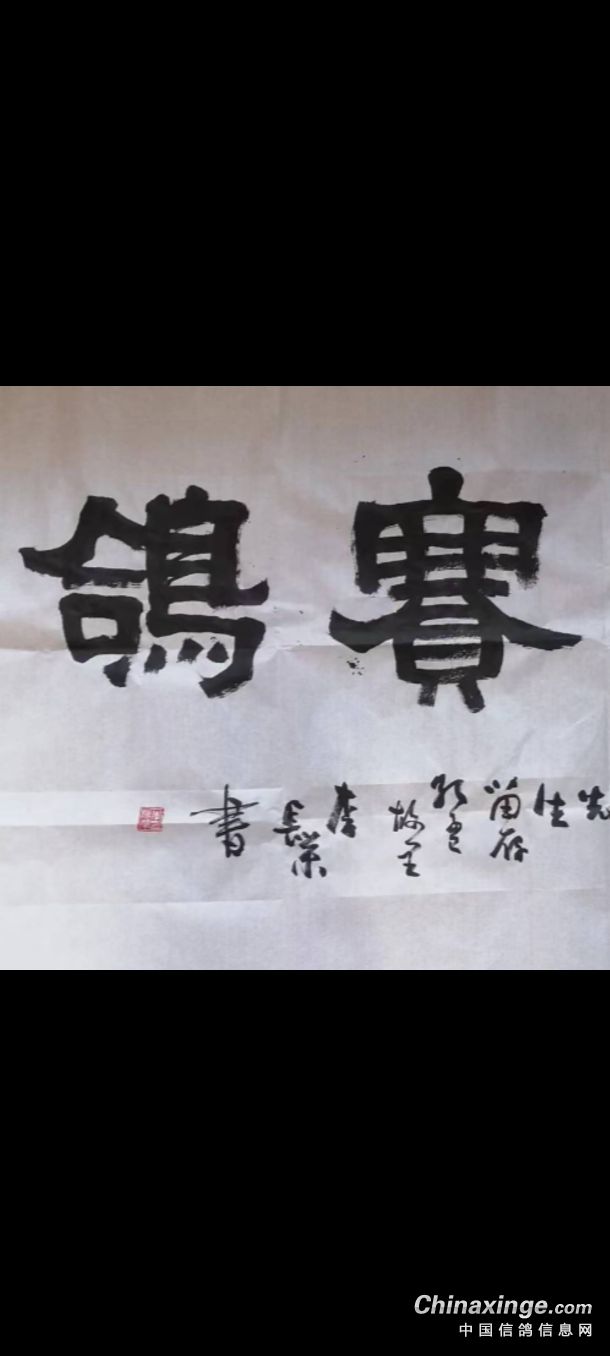 賽鴿
先生
留存
故里
李
長榮
書
Chinaxinge.com
中国信鸽信息网